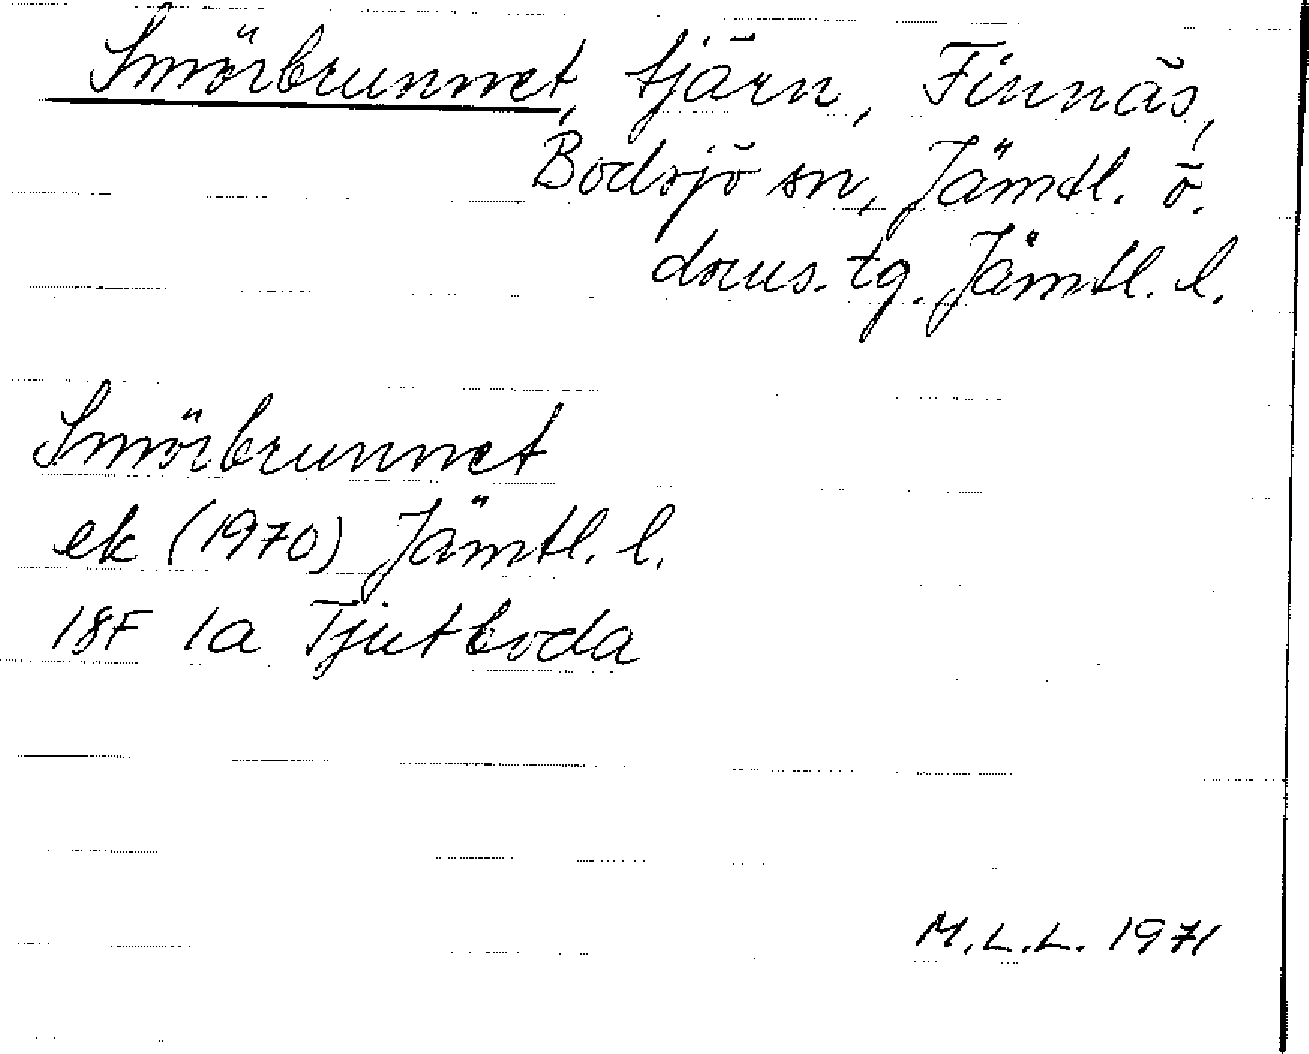 Smörbrunnet, tjärn, Finnäs,
Bodsjö sn, Jämtl. ö.
doms. tg. Jämtl. l.
Smörbrunnet
ek (1970) Jämtl. l.
18F 1a Tjutboda
M.L.L. 1971